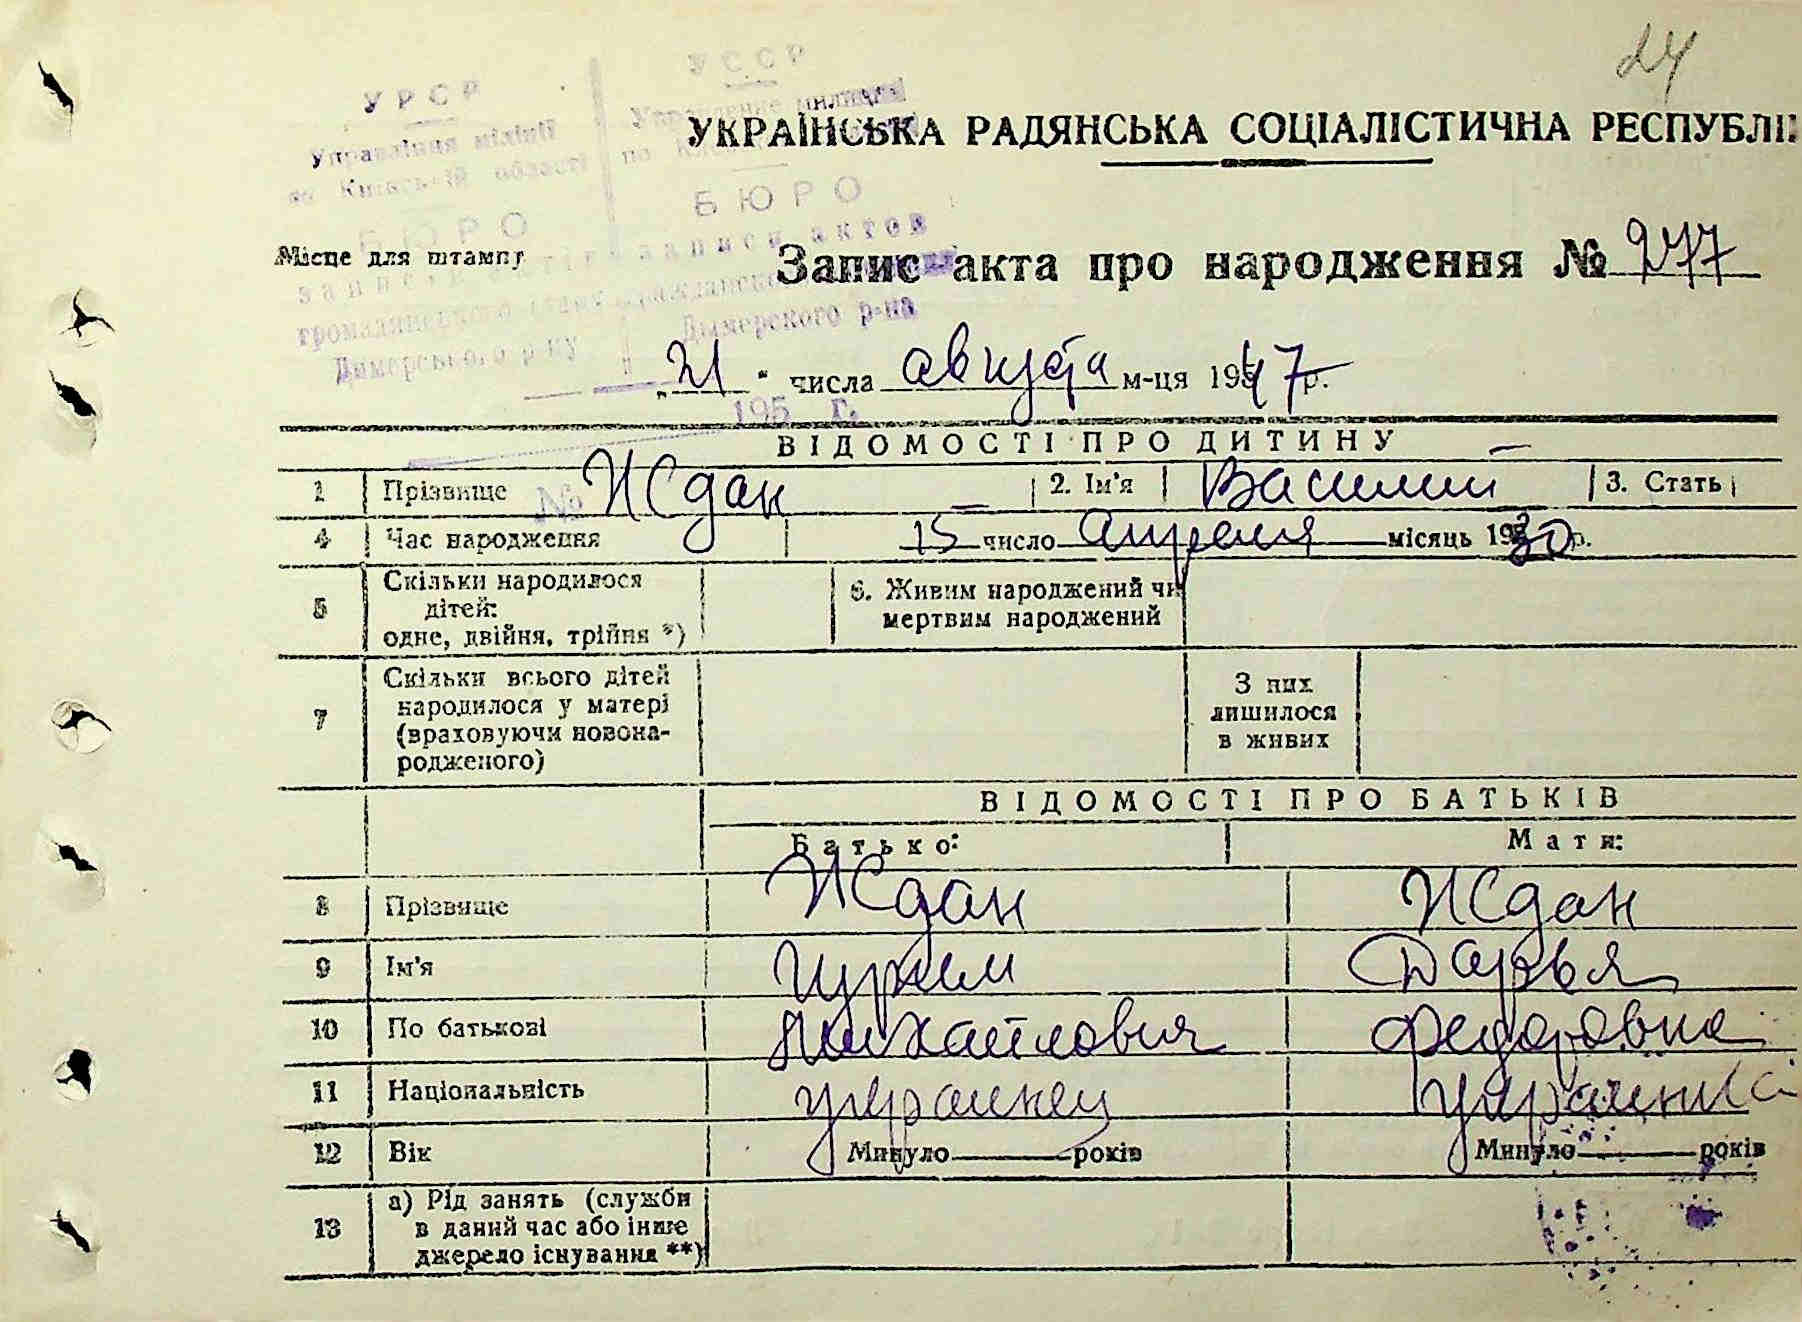 24
УРСР
Управління міліції
по Київській області
БЮРО
УССР
Управление милиции
БЮРО
записи актов
Димерського р-ну
Дымерского р-на
195 г.
№
УКРАЇНСЬКА РАДЯНСЬКА СОЦІАЛІСТИЧНА РЕСПУБЛІ
Місце для штампу
Запис акта про народження № 277
„21" числа августа м-ця 1947 р.
ВІДОМОСТІ ПРО ДИТИНУ
1 Прізвище Ждан 2. Ім'я Василий 3. Стать
4 Час народження 15 число апреля місяць 1930 р.
5 Скільки народилося
дітей:
одне, двійня, трійня *)
6. Живим народжений чи
мертвим народжений
7 Скільки всього дітей
народилося у матері
(враховуючи новона-
родженого)
З них
лишилося
в живих
ВІДОМОСТІ ПРО БАТЬКІВ
Батько: Мати:
8 Прізвище Ждан Ждан
9 Ім'я Дарья
10 По батькові Михайлович Федоровна
11 Національність украинец украинка
12 Вік Минуло років Минуло років
13 а) Рід занять (служби
в даний час або інше
джерело існування **)